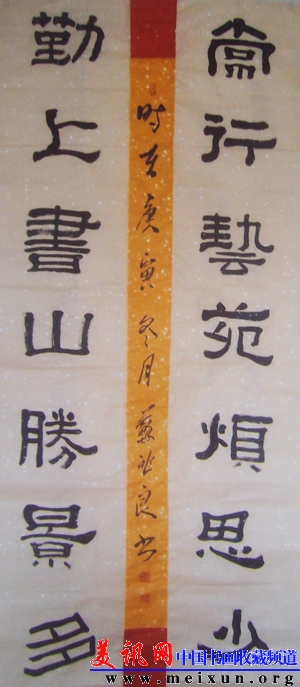 常行藝苑煩思少
勤上書山勝景多
时在庚寅冬月蘇良书
美讯网 中国书画收藏频道
www.meixun.org